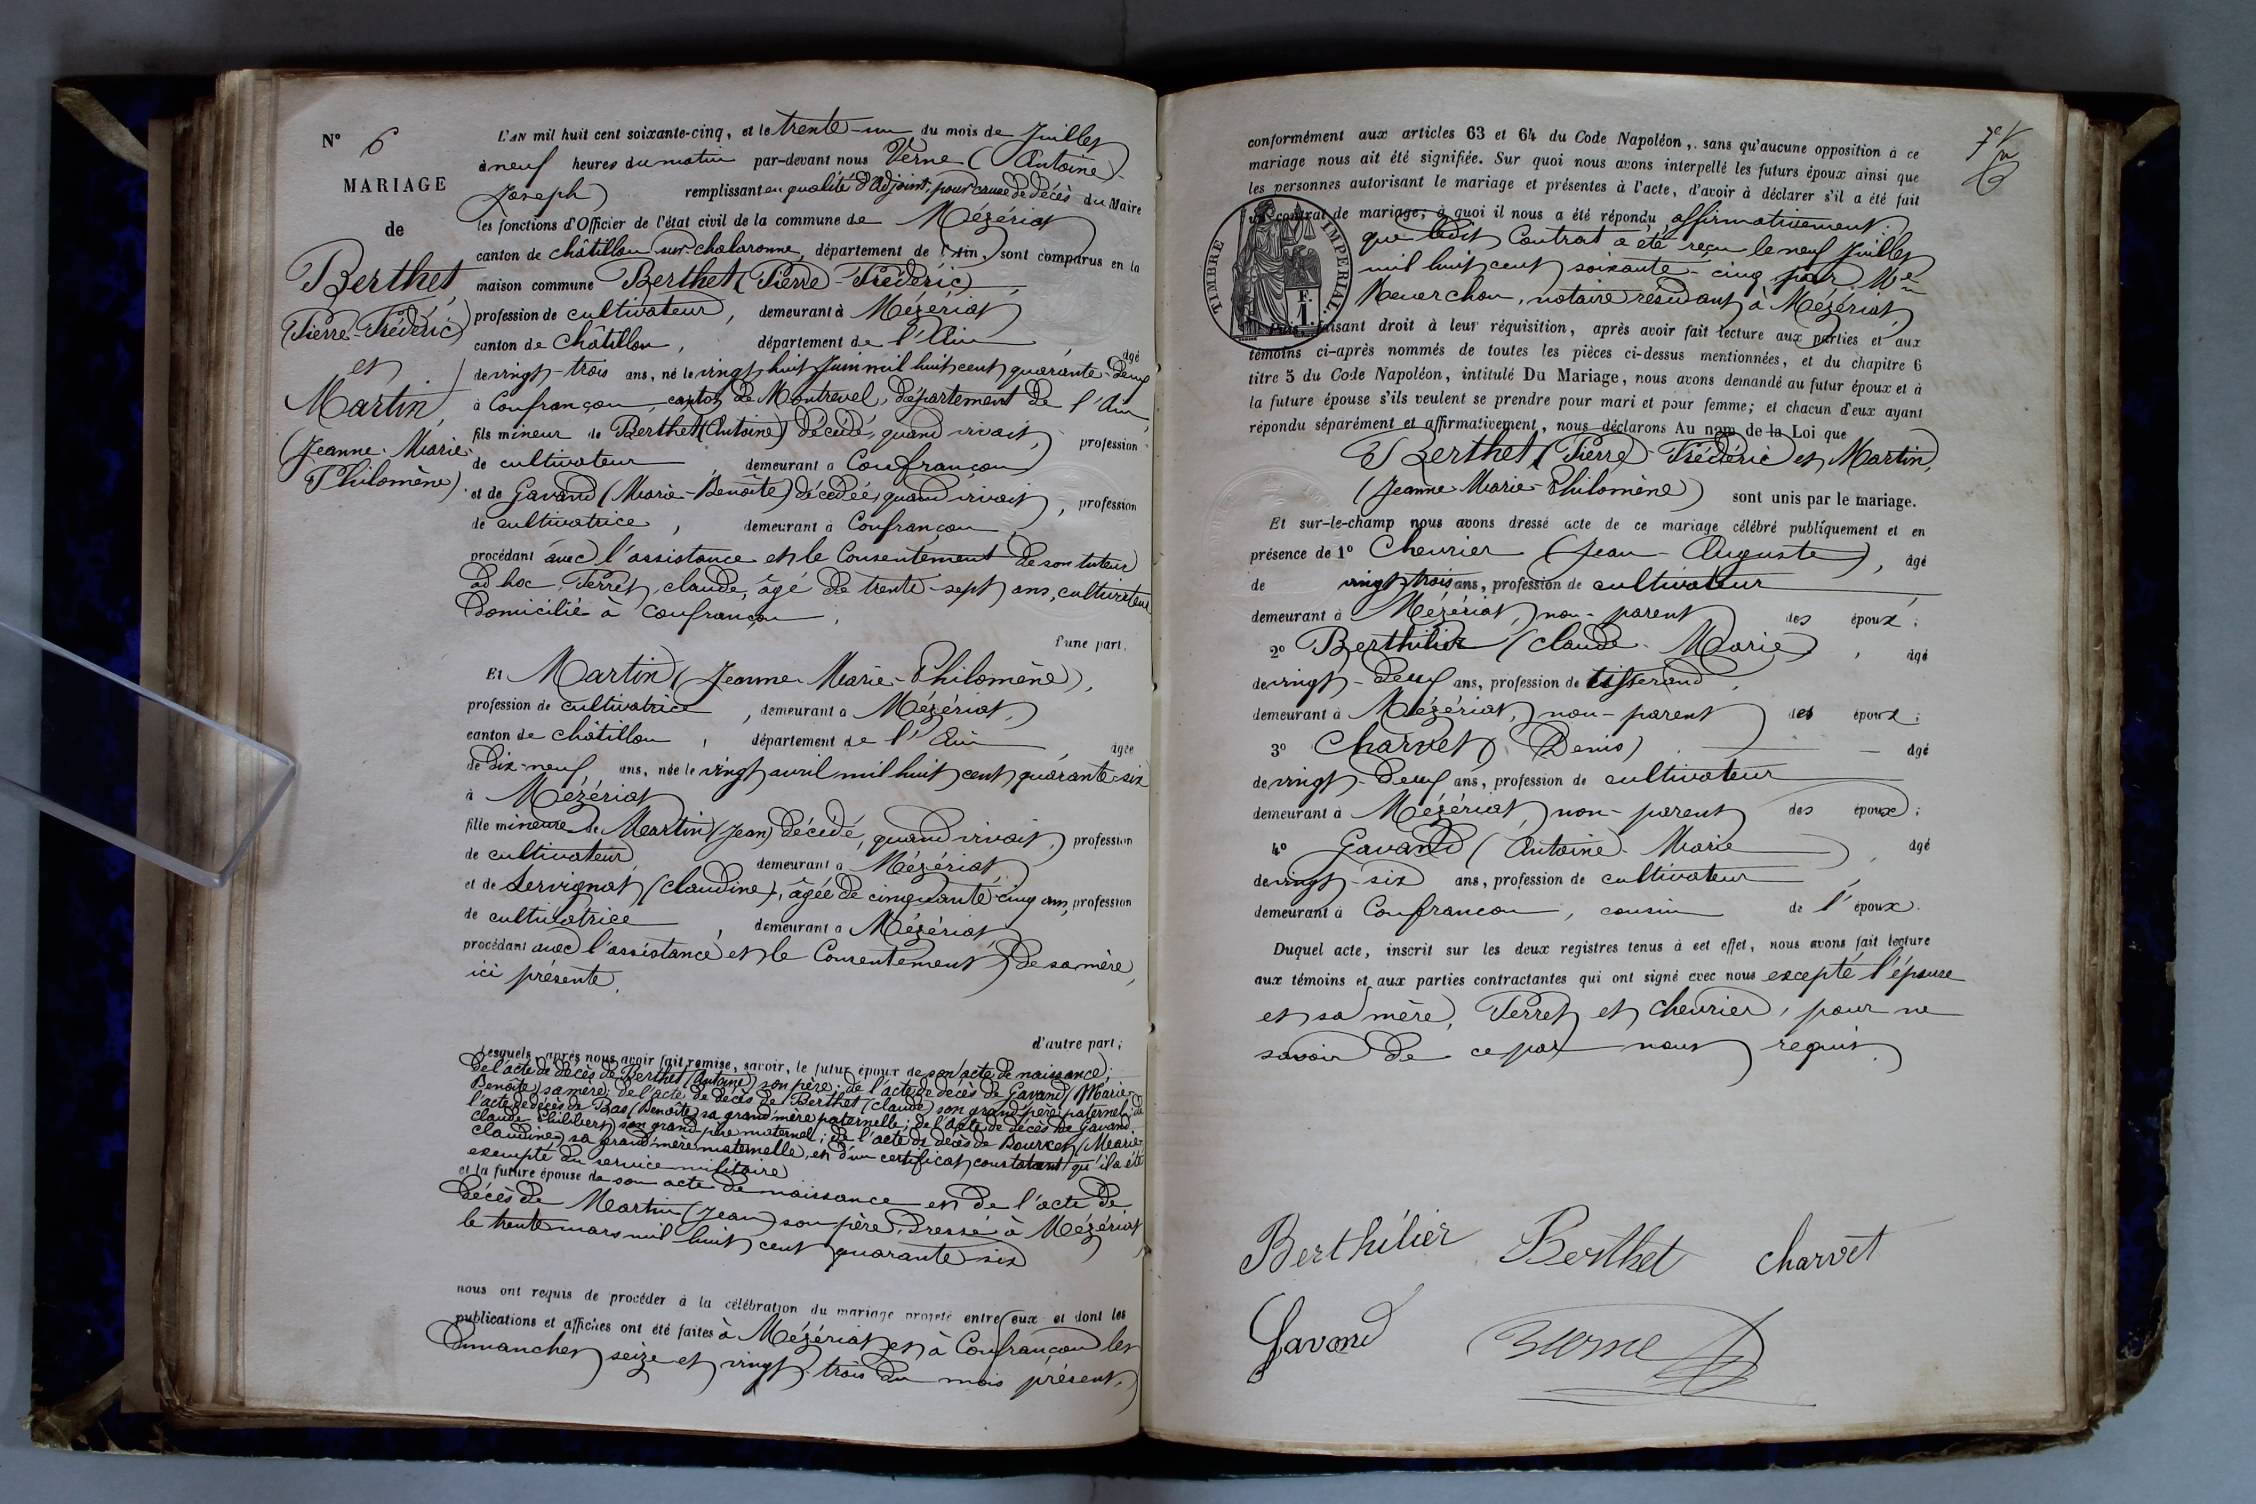 N° 6
MARIAGE
de
Berthet
(Pierre-Frédéric)
et
Martin
(Jeanne-Marie-
Philomène).
L'AN mil huit cent soixante-cinq, et le trente-un du mois de Juillet
à neuf heures du matin par-devant nous Verne (Antoine)-
Joseph) remplissant en qualité d'Adjoint, pour cause de décès du Maire
les fonctions d'Officier de l'état civil de la commune de Mézériat
canton de châtillon sur chalaronne, département de l'Ain, sont comparus en la
maison commune Berthet (Pierre-Frédéric)
profession de cultivateur, demeurant à Mézériat
canton de Châtillon, département de l'Ain, âgé
de vingt-trois ans, né le vingt huit Juin mil huit cent quarante-deux
à Confrançon, canton de Montrevel, département de l'Ain
fils mineur de Berthet (Antoine) décédé, quand vivait, profession
de cultivateur, demeurant à Confrançon
et de Gavand (Marie-Benoîte) décédée, quand vivait, profession
de cultivatrice, demeurant à Confrançon
procédant avec l'assistance et le Consentement de son tuteur
ad hoc Perret, claude, âgé de trente-sept ans, cultivateur
domicilié à Confrançon,
d'une part.
Et Martin (Jeanne-Marie-Philomène),
profession de cultivatrice, demeurant à Mézériat,
canton de châtillon, département de l'Ain, âgée
de dix-neuf ans, née le vingt avril mil huit cent quarante-six
à Mézériat
fille mineure de Martin (Jean) décédé, quand vivait, profession
de cultivateur demeurant à Mézériat
et de Servignat (Claudine), âgée de cinquante-cinq ans, profession
de cultivatrice, demeurant à Mézériat
procédant avec l'assistance et le Consentement de sa mère,
ici présente.
d'autre part;
Lesquels, après nous avoir fait remise, savoir, le futur époux de son acte de naissance;
de l'acte de décès de Berthet (Antoine) son père; de l'acte de décès de Gavand (Marie-
Benoîte) sa mère; de l'acte de décès de Berthet (Claude) son grand'père paternel; de
l'acte de décès de Bas (Benoîte) sa grand'mère paternelle; de l'acte de décès de Gavand
Claude-Philibert, son grand-père maternel; de l'acte de décès de Bourcet (Marie-
Claudine) sa grand'mère maternelle, et d'un certificat constatant qu'il a été
exempté du service militaire
et la future épouse de son acte de naissance et de l'acte de
décès de Martin (Jean) son père, dressé à Mézériat
le trente mars mil huit cent quarante six
nous ont requis de procéder à la célébration du mariage projeté entre eux et dont les
publications et affiches ont été faites à Mézériat et à Confrançon les
dimanches seize et vingt-trois du mois présent,
conformément aux articles 63 et 64 du Code Napoléon, sans qu'aucune opposition à ce
mariage nous ait été signifiée. Sur quoi nous avons interpellé les futurs époux ainsi que
les personnes autorisant le mariage et présentes à l'acte, d'avoir à déclarer s'il a été fait
un contrat de mariage; à quoi il nous a été répondu affirmativement;
que ledit Contrat a été reçu le neuf Juillet
mil huit cent soixante-cinq par Me
notaire résidant à Mézériat,
TIMBRE IMPERIAL.
F.
1.
Puis, faisant droit à leur réquisition, après avoir fait lecture aux parties et aux
témoins ci-après nommés de toutes les pièces ci-dessus mentionnées, et du chapitre 6
titre 5 du Code Napoléon, intitulé Du Mariage, nous avons demandé au futur époux et à
la future épouse s'ils veulent se prendre pour mari et pour femme; et chacun d'eux ayant
répondu séparément et affirmativement, nous déclarons Au nom de la Loi que
Berthet (Pierre-Frédéric et Martin,
(Jeanne Marie-Philomène) sont unis par le mariage.
Et sur-le-champ nous avons dressé acte de ce mariage célébré publiquement et en
présence de 1° Chevrier (Jean-Auguste), âgé
de vingt-trois ans, profession de cultivateur
demeurant à Mézériat, non-parent des époux;
2° Berthilier (Claude-Marie), âgé
de vingt-deux ans, profession de tisserand,
demeurant à Mézériat, non-parent des époux;
3° Charvet (Denis) âgé
de vingt-deux ans, profession de cultivateur
demeurant à Mézériat, non-parent des époux;
4° Gavand (Antoine-Marie), âgé
de vingt-six ans, profession de cultivateur,
demeurant à Confrançon, cousin de l'époux.
Duquel acte, inscrit sur les deux registres tenus à cet effet, nous avons fait lecture
aux témoins et aux parties contractantes qui ont signé avec nous excepté l'épouse
et sa mère, Perret et Chevrier, pour ne
savoir de ce par nous requis.
Berthilier Berthet Charvet
Gavand Verne